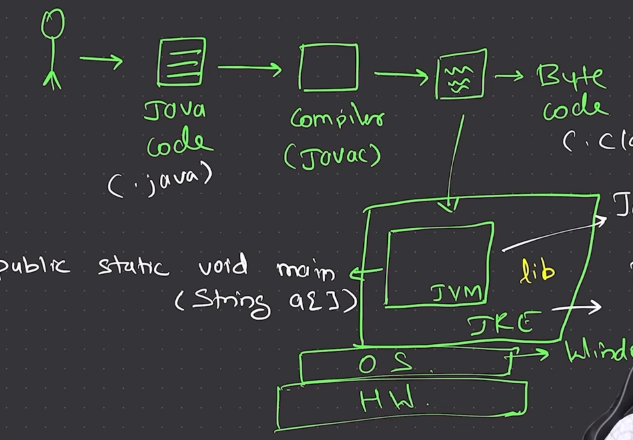 Java
code
(.java)
Compiler
(Javac)
Byte
code
public static void main
(String a[])
JVM
lib
JRE
OS.
HW.